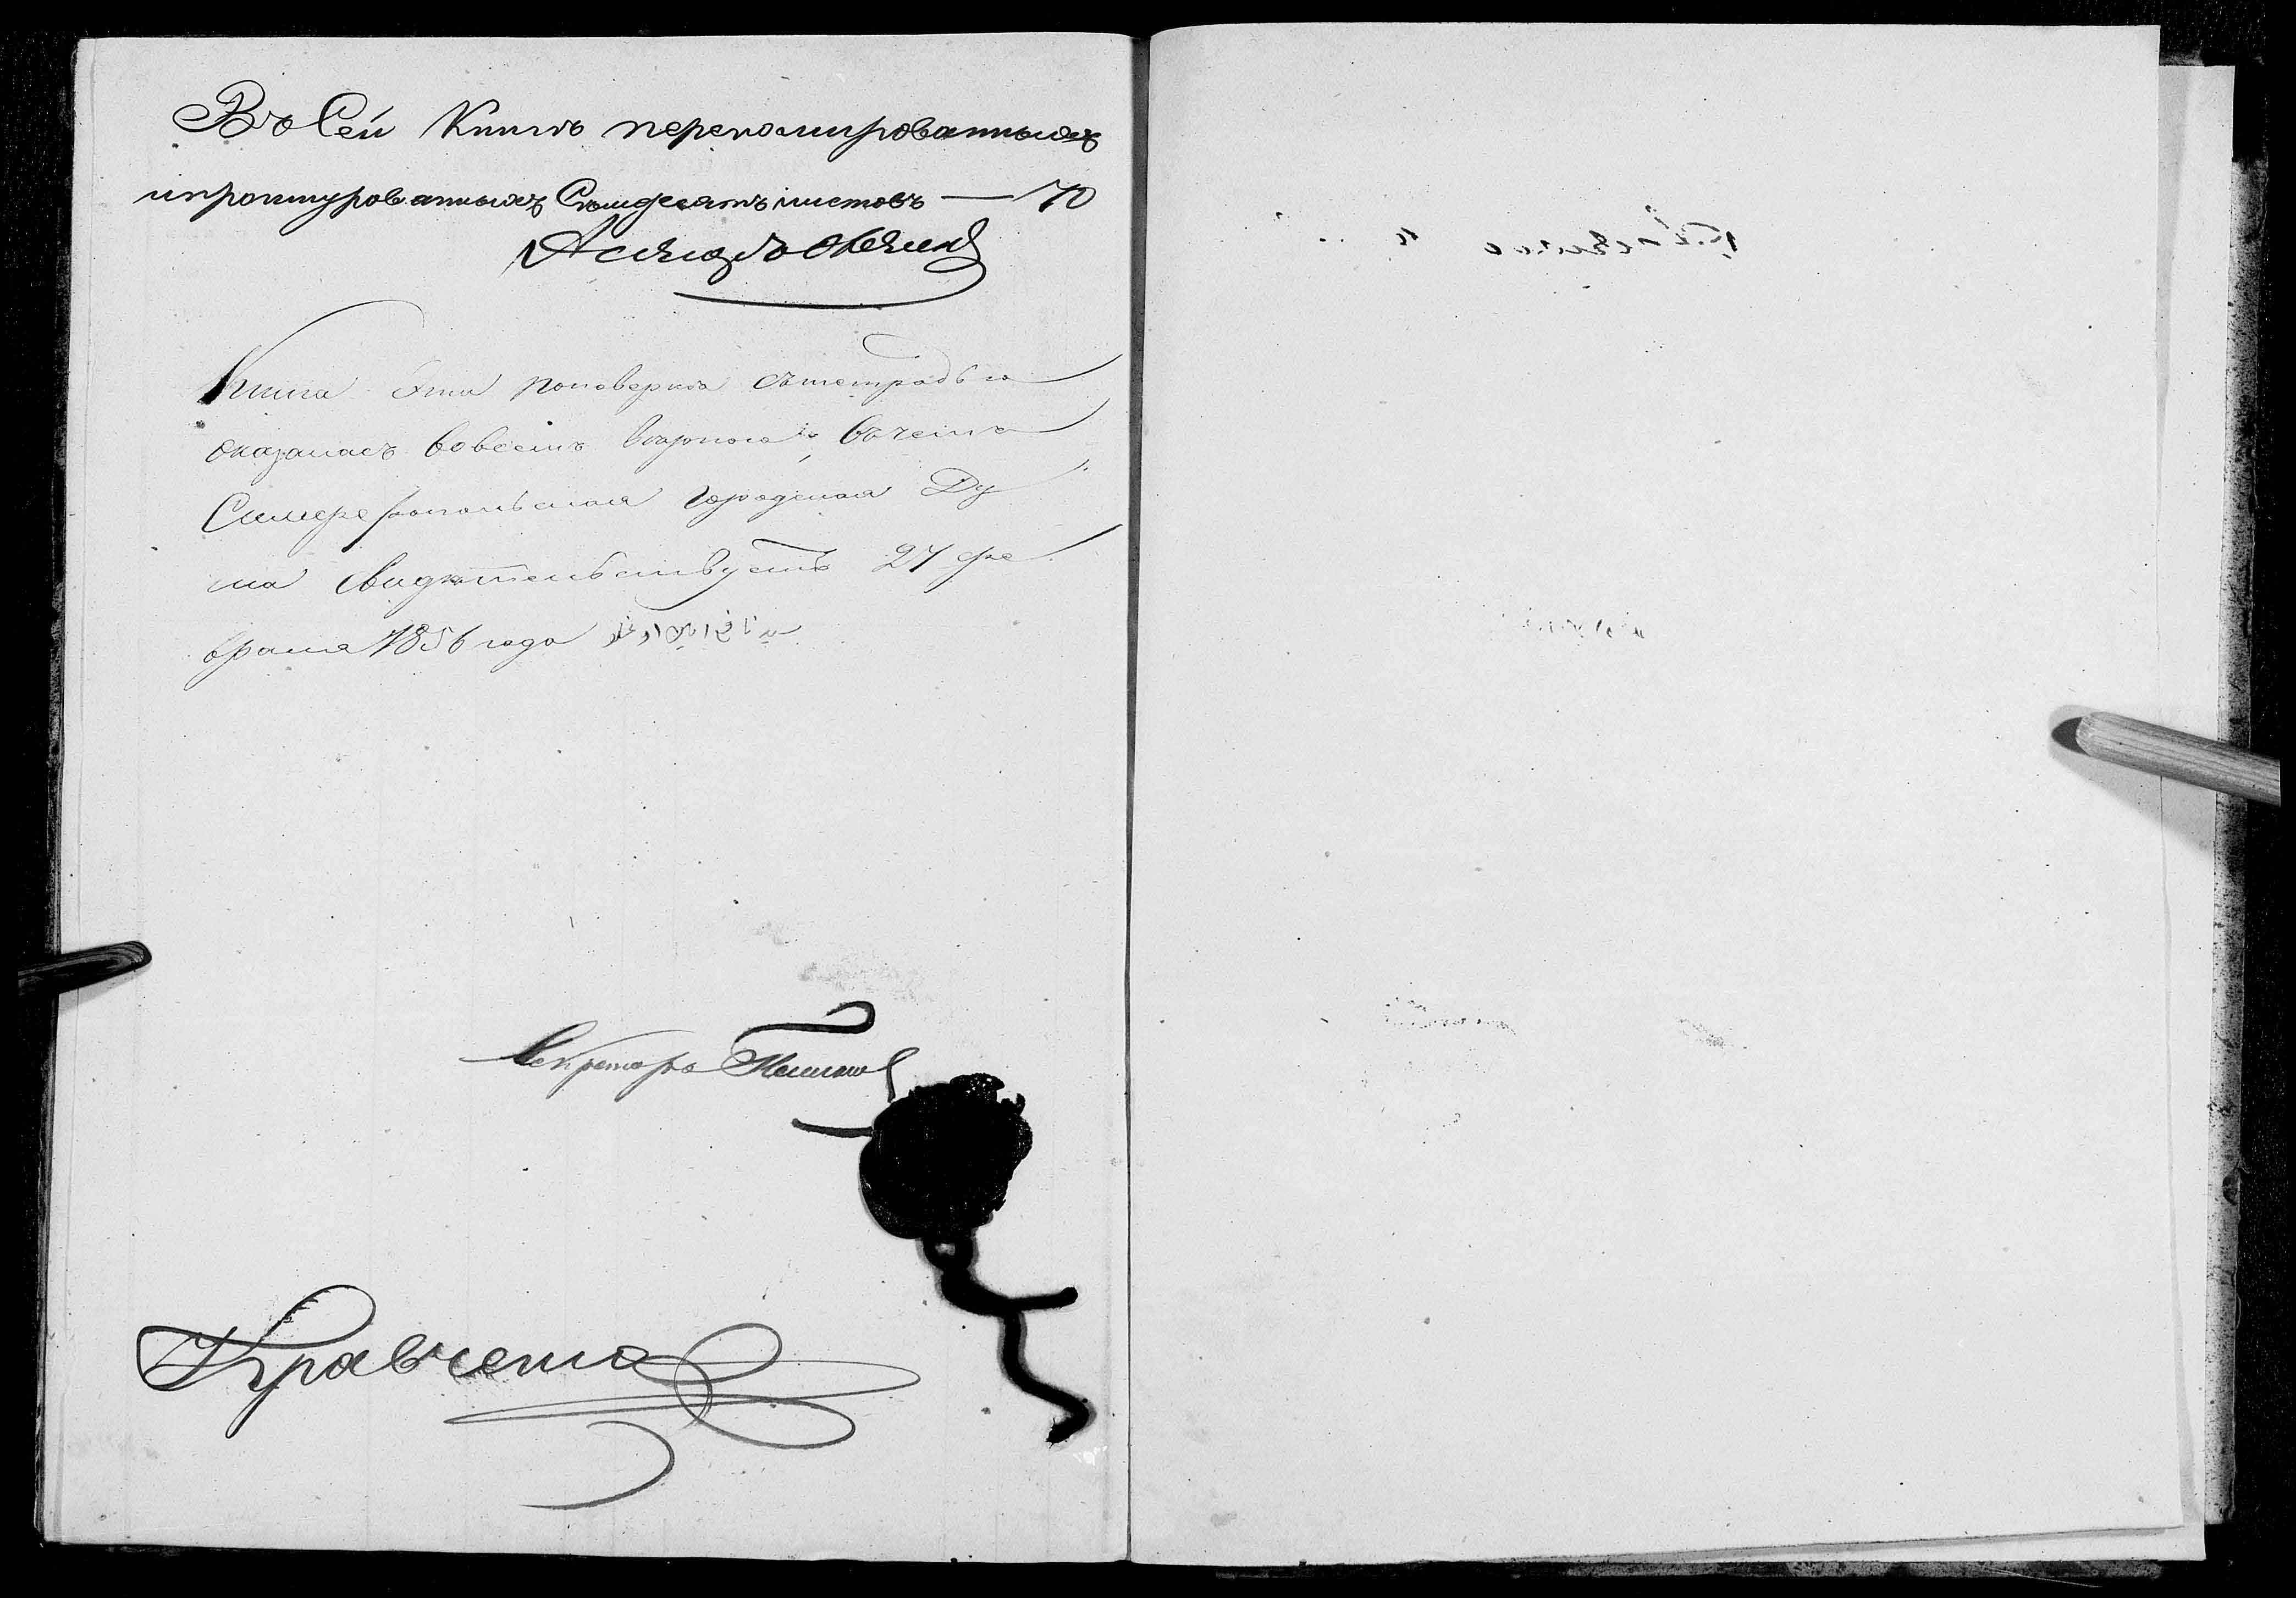 Въ Сей Книгѣ перепомированныхъ
ипрошнурованныхъ Семдесятъ листовъ — 70
Книга Эта поповеркѣ сътетрадью
оказалась вовсемъ верною въчемъ
Симферопольская Городская Ду
ма свидѣтельствуетъ 27 фе
враля 1856 года
Секретарь
Кравченко